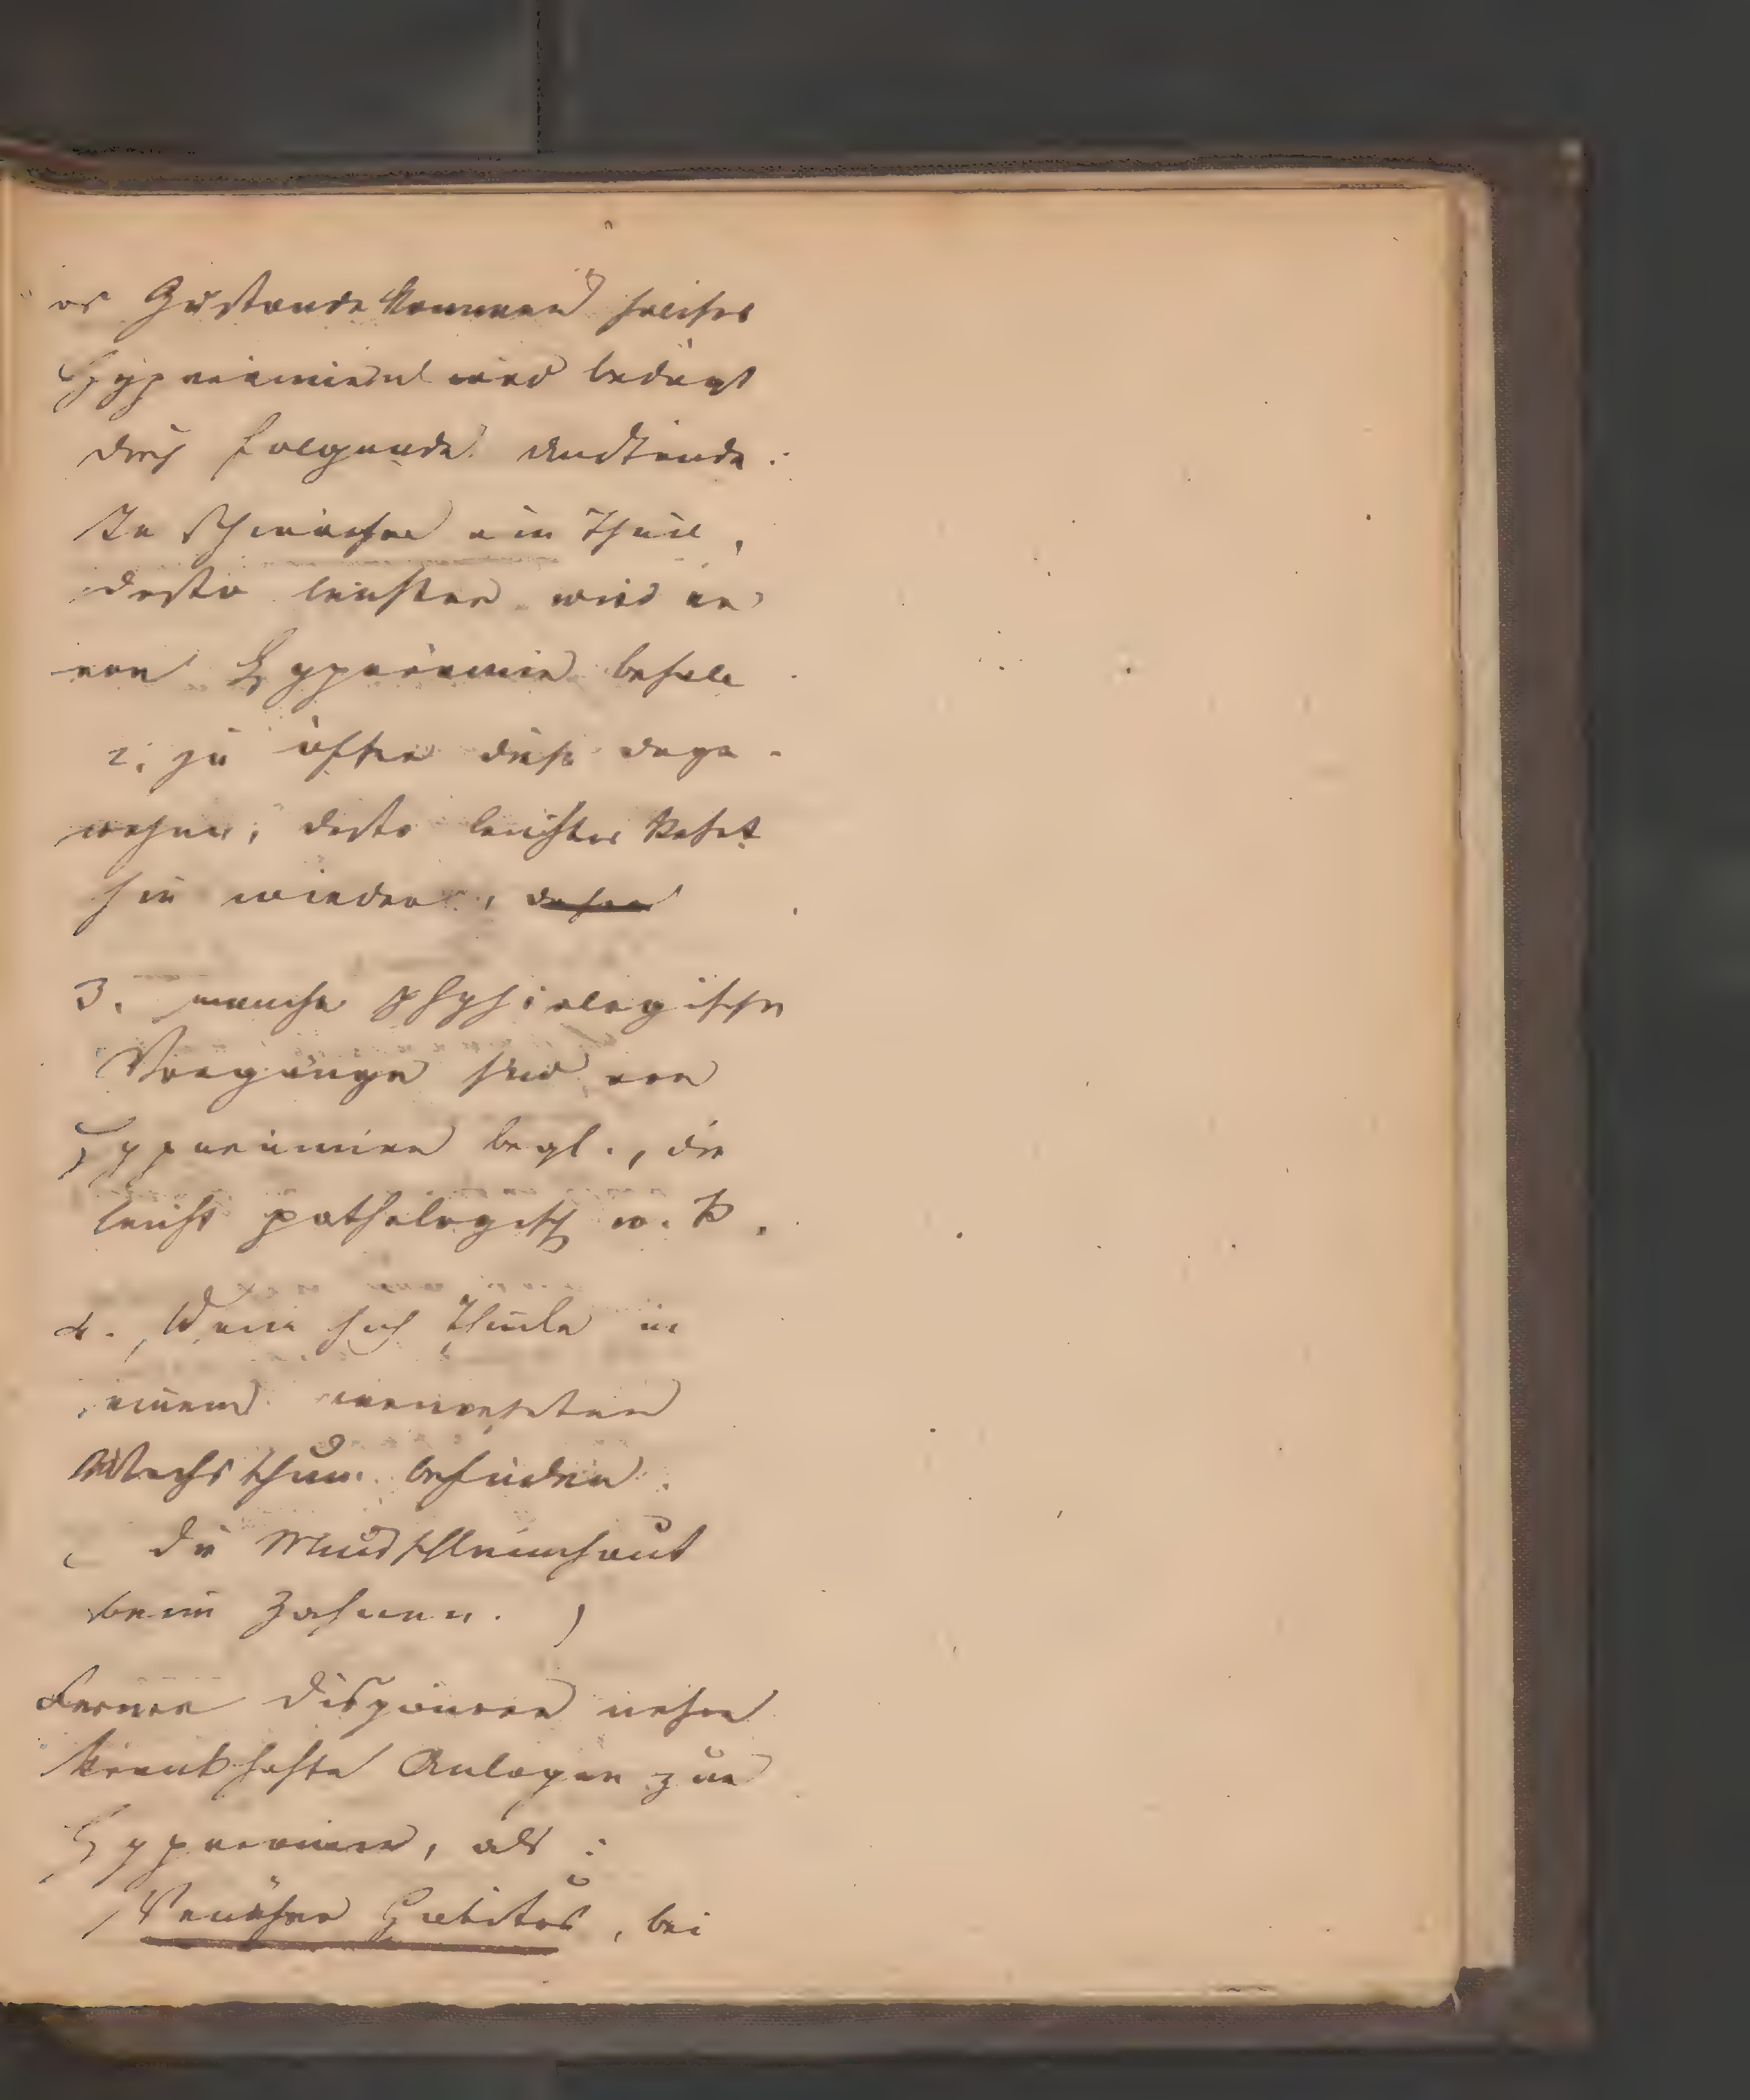 as Zustandekommen solcher
Hyperämien wird bedingt
durch folgende Umstände:
Je schwächer ein Theil,
desto leichter wird er
von Hyperämie befalle
2. je öfter diese dage-
wesen, desto leichter kehrt
sie wieder, daher
3. manche physiologischen
Vorgänge sind von
Hyperämien begl., die
leicht pathologisch w. k.
4. Wenn sich Theile in
einem vermehrten
Wachsthum befinden.
( die Mundschleimhaut
beim Zahnen. )
Ferner disponiren
krankhafte Anlagen zur
Hyperämie, als:
Venöser Habitus, bei